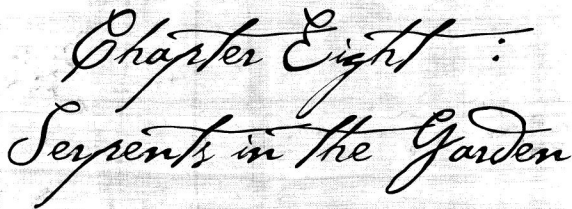 Chapter Eight :
Serpents in the Garden